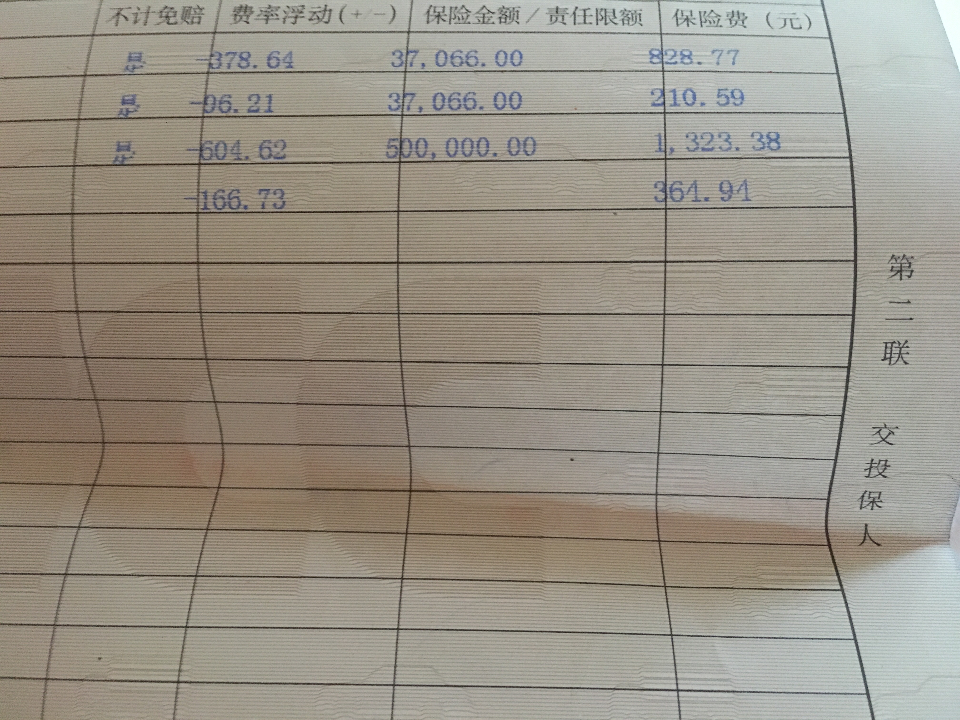 不计免赔 费率浮动(+-) 保险金额/责任限额 保险费(元)
是 -378.64 37,066.00 828.77
是 -96.21 37,066.00 210.59
是 -604.62 500,000.00 1,323.38
-166.73 364.94
第二联 交投保人